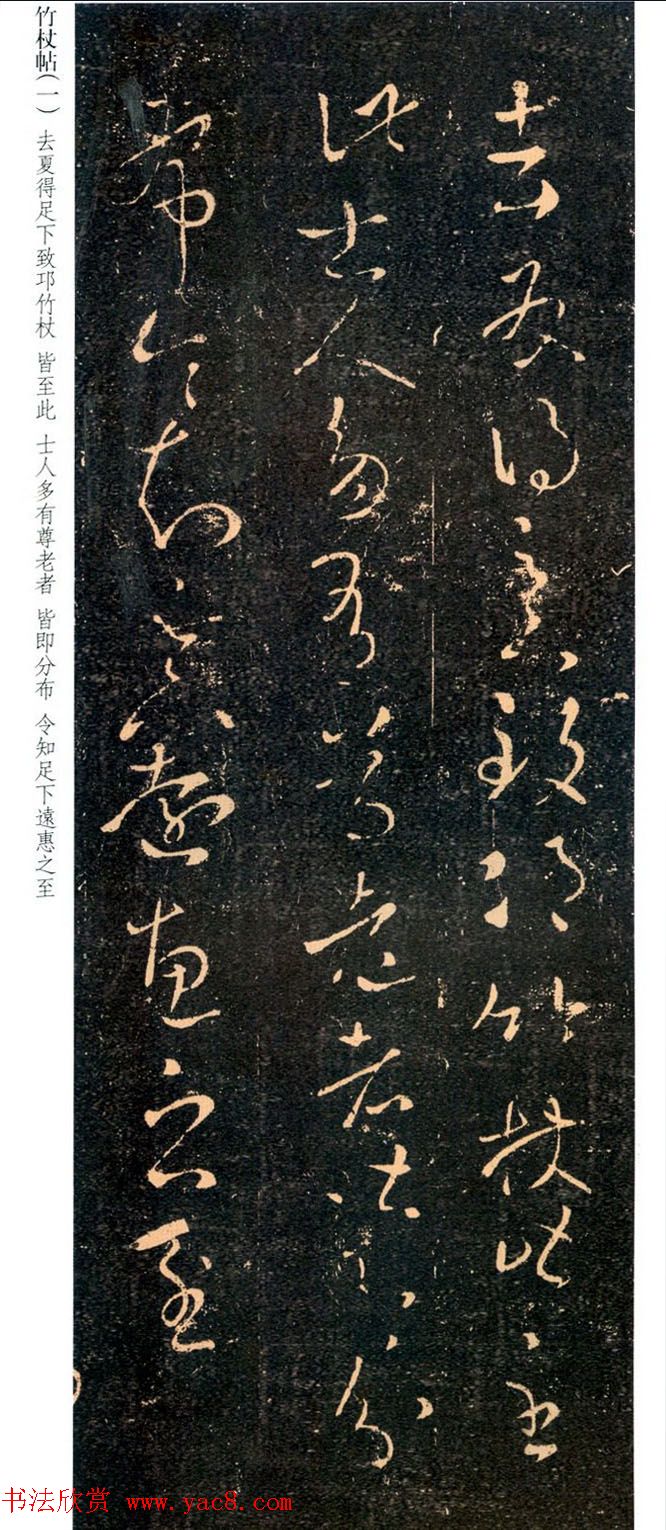 去夏得足下致邛竹杖皆至
此士人多有尊老者皆即分
布令知足下遠惠之至
竹杖帖(一) 去夏得足下致邛竹杖 皆至此 士人多有尊老者 皆即分布 令知足下遠惠之至
书法欣赏 www.yac8.com